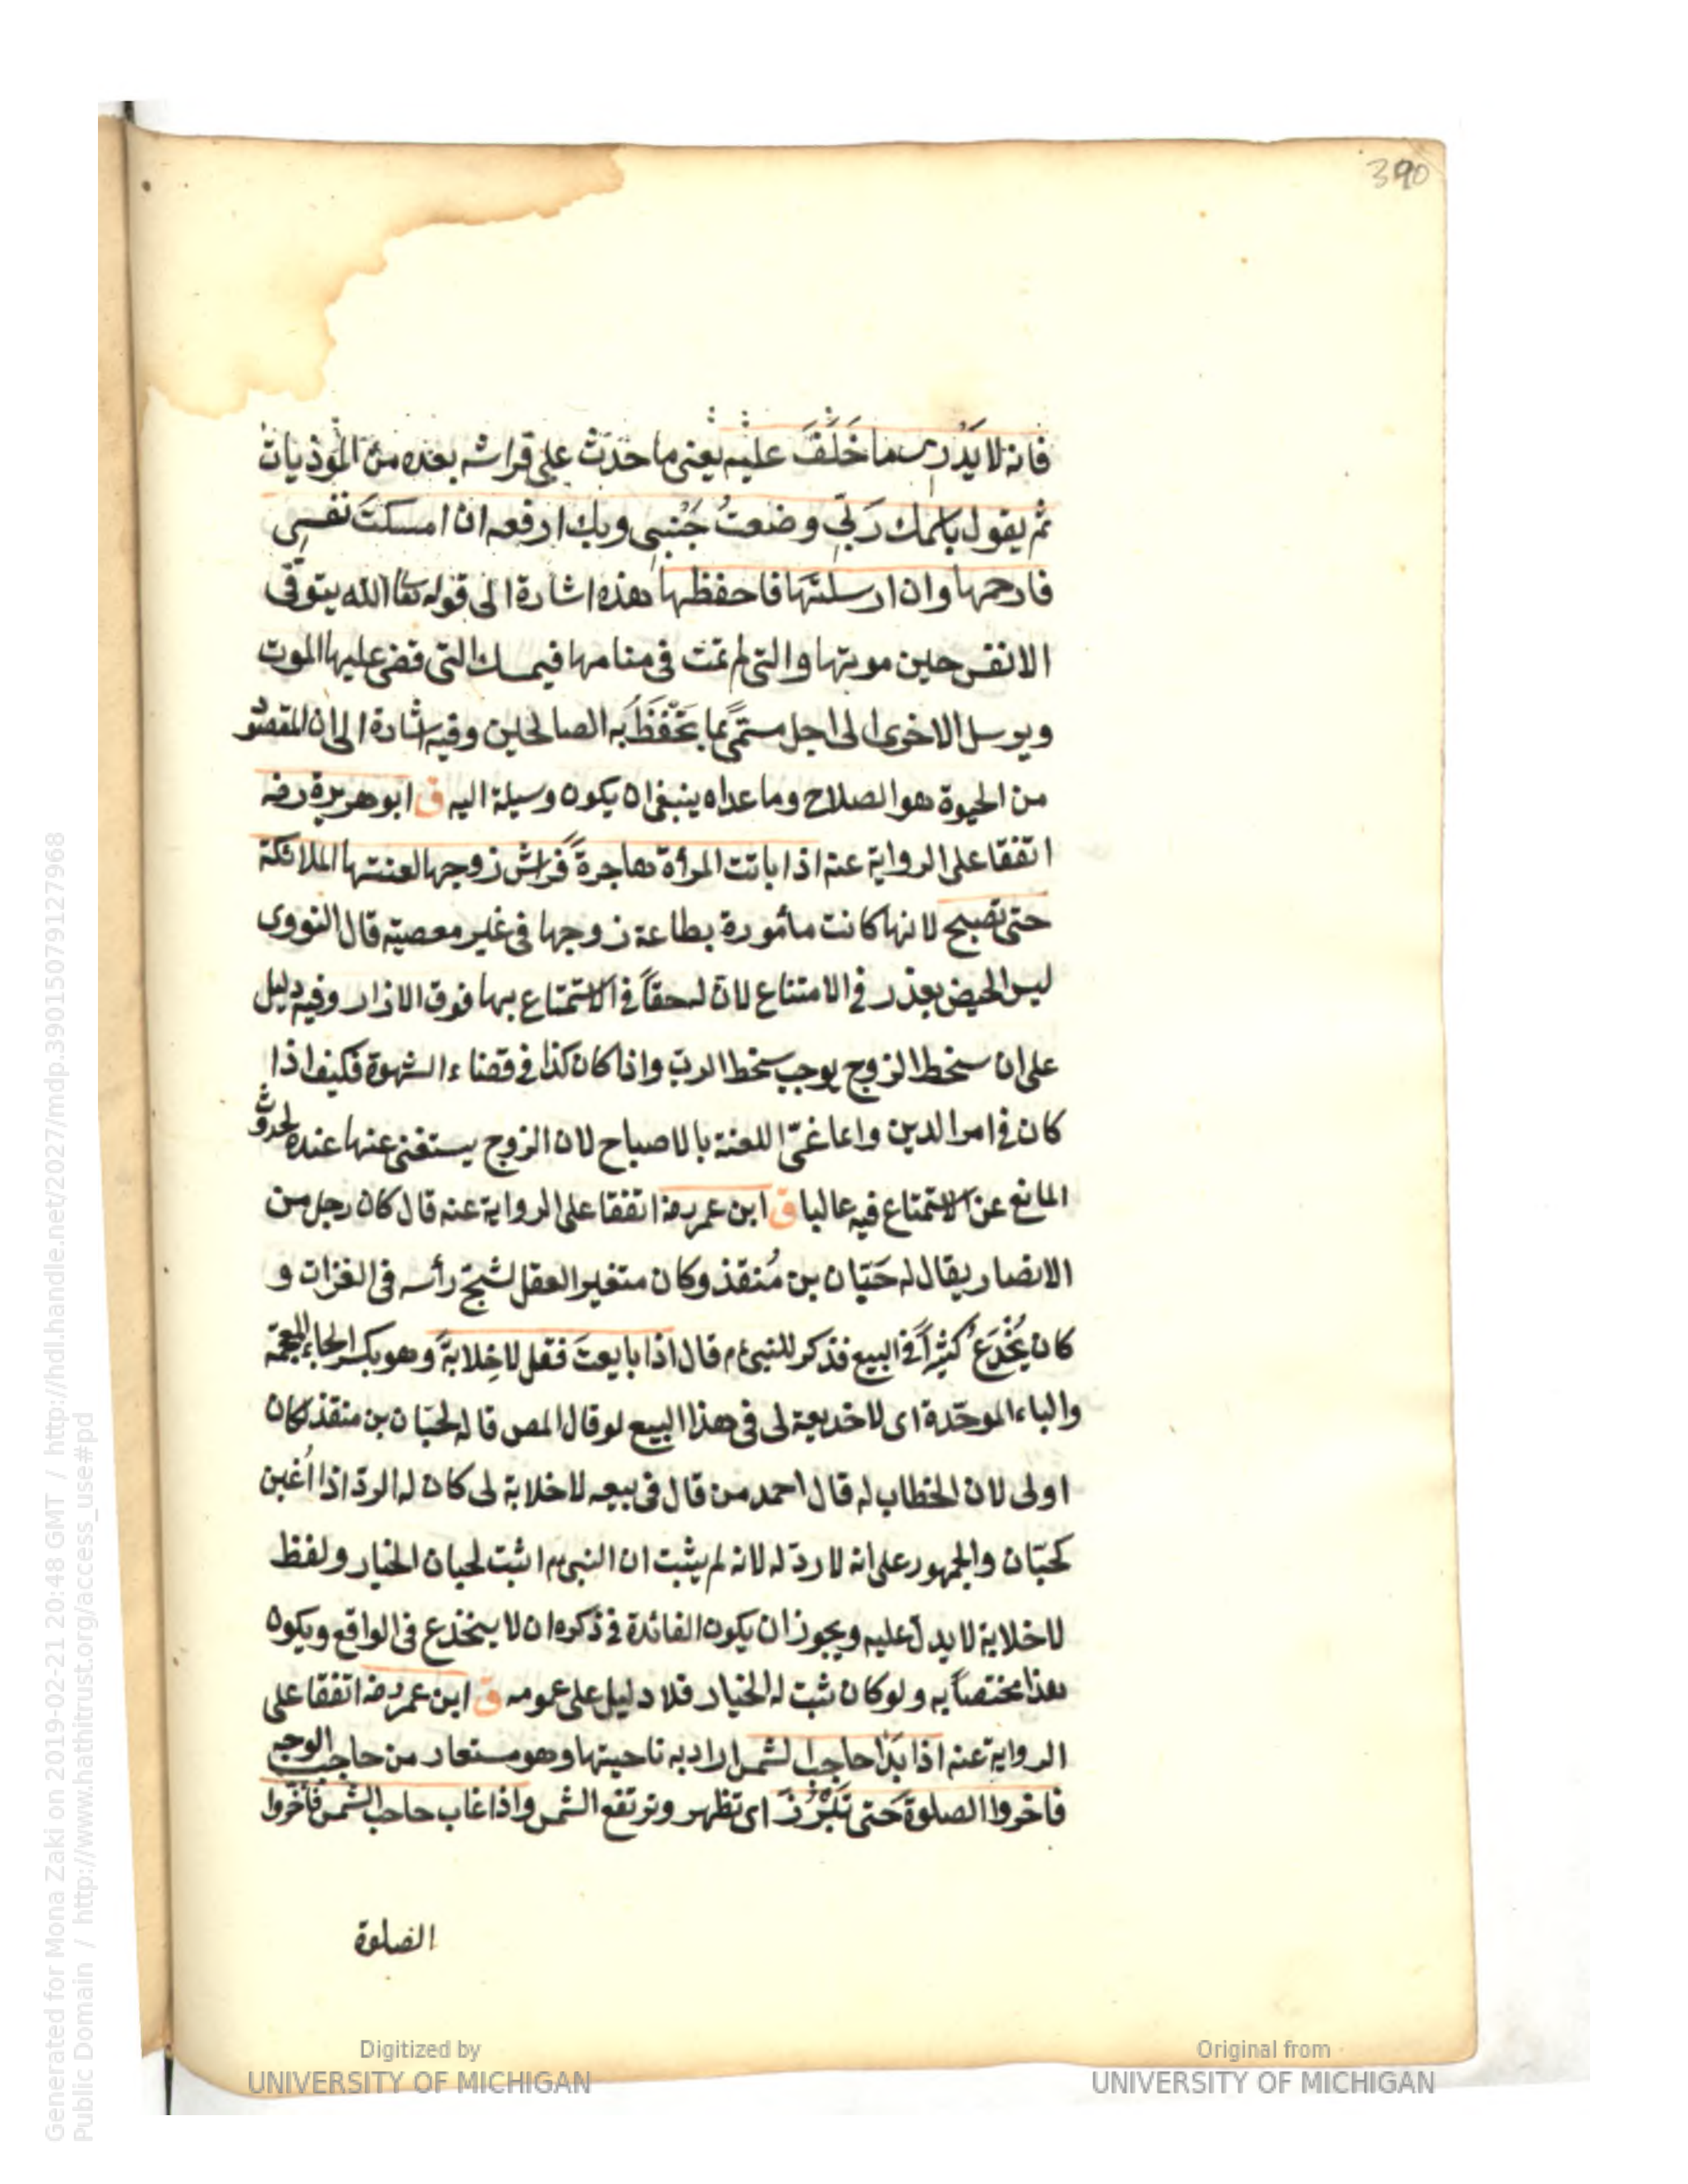 390
فانه لا يَدْرى ما خَلَّفَ عليه يعنى ما حَدَثَ على فراشه بعده من المؤذيات
ثم يقول باسمك رَبّى وضعتُ جَنْبِى وبك ارفعه ان امسكتَ نفسِى
فارحمها وان ارسلتَها فاحفظها هذه اشارة الى قوله تعا الله يتوفّى
الانفس حين موتها والتى لم تمت فى منامها فيمسك التى قضى عليها الموت
ويرسل الاخرى الى اجل مسمًّى بما تَحْفَظُ به الصالحين وفيه اشارة الى ان المقصو
من الحيوة هو الصلاح وما عداه ينبغى ان يكون وسيلة اليه ق ابو هريرة رضه
اتفقا على الرواية عنه اذا باتت المرأة هاجرةً فراش زوجها لعنتها الملائكة
حتى تصبح لانها كانت مأمورة بطاعة زوجها فى غير معصية قال النووى
ليس الحيض بعذر فى الامتناع لان له حقاً فى الاستمتاع بها فوق الازار وفيه دليل
على ان سخط الزوج يوجب سخط الربّ واذا كان كذا فى قضاء الشهوة فكيف اذا
كان فى امر الدين وانما غيّى اللعنة بالاصباح لان الزوج يستغنى عنها عنده لحدوث
المانع عن الاستمتاع فيه غالبا ق ابن عمر رضه اتفقا على الرواية عنه قال كان رجل من
الانصار يقال له حَبّان بن مُنقذ وكان متغير العقل لشجّ رأسه فى الغزات و
كان يُخْدَعُ كثيراً فى البيع فذكر للنبى ءم قال اذا بايعتَ فقل لا خِلابةَ وهو بكسر الخاء المعجمة
والباء الموحّدة اى لا خديعة لى فى هذا البيع لو قال المص قاله لحبّان بن منقذ لكان
اولى لان الخطاب له قال احمد من قال فى بيعه لا خلابة لى كان له الردّ اذا اُغبن
كحبّان والجمهور على انه لا ردّ له لانه لم يثبت ان النبى ءم اثبت لحبان الخيار ولفظ
لا خلابة لا يدلّ عليه ويجوز ان يكون الفائدة فى ذكره ان لا ينخدع فى الواقع ويكون
هذا مختصاً به ولو كان ثبت له الخيار فلا دليل على عمومه ق ابن عمر رضه اتفقا على
الرواية عنه اذا بَدَا حاجب الشمس اراد به ناحيتها وهو مستعار من حاجب الوجه
فاخروا الصلوة حَتى تَبْرُزَ اى تظهر وترتفع الشمس واذا غاب حاجب الشمس فأخّروا
الصلوة
Digitized by
UNIVERSITY OF MICHIGAN
Original from
UNIVERSITY OF MICHIGAN
Generated for Mona Zaki on 2019-02-21 20:48 GMT / http://hdl.handle.net/2027/mdp.39015079127968
Public Domain / http://www.hathitrust.org/access_use#pd